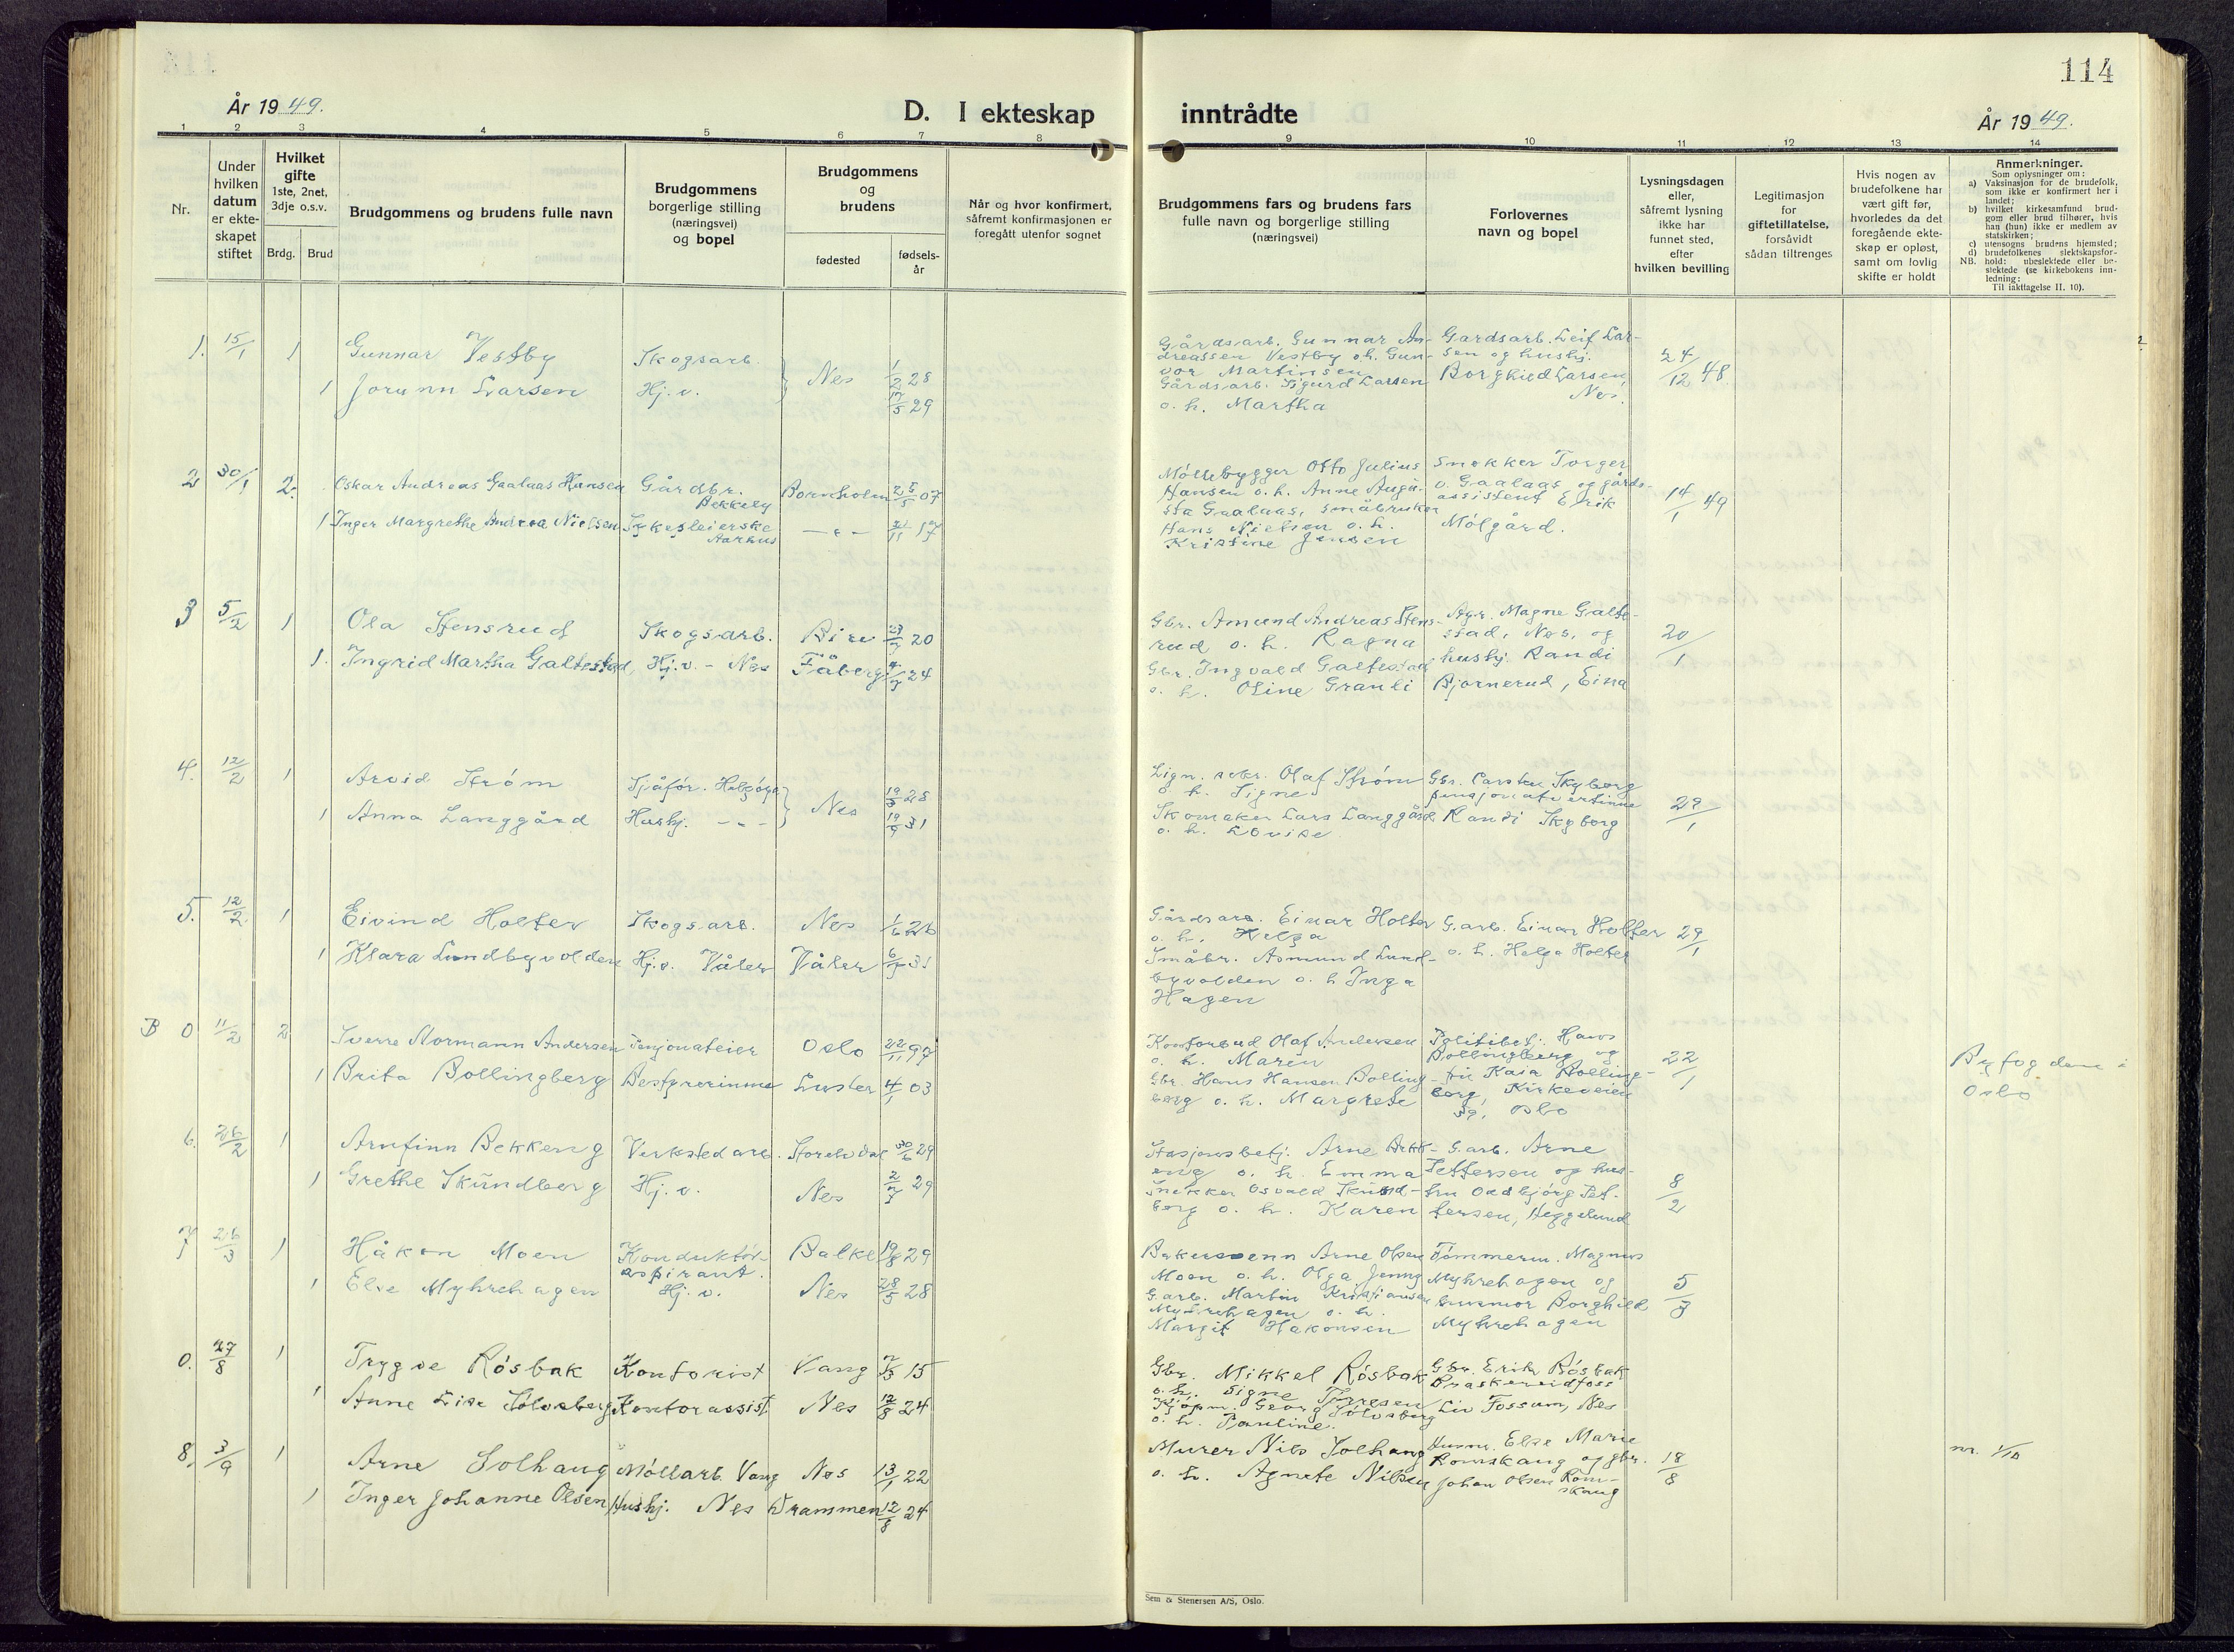 114
År 19 49.
D. I ekteskap
inntrådte
År 19 49.
1 2 3 4 5 6 7 8 9 10 11 12 13 14
Nr.
Under hvilken datum er ekte- skapet stiftet
Hvilket gifte 1ste, 2net, 3dje o.s.v.
Brdg. Brud
Brudgommens og brudens fulle navn
Brudgommens borgerlige stilling (næringsvei) og bopel
Brudgommens og brudens
fødested
fødsels- år
Når og hvor konfirmert, såfremt konfirmasjonen er foregått utenfor sognet
Brudgommens fars og brudens fars fulle navn og borgerlige stilling (næringsvei)
Forlovernes navn og bopel
Lysningsdagen eller, såfremt lysning ikke har funnet sted, efter hvilken bevilling
Legitimasjon for giftetillatelse, forsåvidt sådan tiltrenges
Hvis nogen av brudefolkene har vært gift før, hvorledes da det foregående ekte- skap er opløst, samt om lovlig skifte er holdt
Anmerkninger.
Som oplysninger om:
a) Vaksinasjon for de brudefolk, som ikke er konfirmert her i landet;
b) hvilket kirkesamfund brud- gom eller brud tilhører, hvis han (hun) ikke er medlem av statskirken;
c) utensogns brudens hjemsted;
d) brudefolkenes slektskapsfor- hold: ubeslektede eller be- slektede (se kirkebokens inn- ledning:
NB.
Til iakttagelse II. 10).
1. 15/1 1 Gunnar Vestby Skogsarb. } Nes 1/2 28
1 Jorunn Larsen Hj.v. 17/5 29
Gårdsarb. Gunnar An-
dreassen Vestby o.h. Gun-
vor Martinsen
Gårdsarb. Sigurd Larsen
o. h. Martha
Gardsarb. Leif Lar-
sen og husbj.
Borghild Larsen,
Nes.
24/12 48
2 30/1 2. Oskar Andreas Gaalaas Hansen Gårdbr. Bekkely Bornholm 25/5 07
1 Inger Margrethe Andrea Nielsen Sykepleierske Aarhus — " — 21/11 17
Møllebygger Otto Julius
Hansen o.h. Anne Augu-
sta Gaalaas, småbruker
Hans Nielsen o.h.
Kristine Jensen
Snekker Torger
v. Gaalaas og gårds-
assistent Erik
Mølgård.
14/1 49
3 5/2 1 Ola Stensrud Skogsarb. Biri 20
1. Ingrid Martha Galtestad, Hj.v. - Nes Fåberg 24
Gbr. Amund Andreas Stens-
rud o. h. Ragna
Gbr. Ingvald Galtestad
o. h. Oline Granli
Agr. Magne Galte-
stad, Nes, og
husbj. Randi
Bjørnerud, Eina
20/1
4. 12/2 1 Arvid Strøm Sjåfør. Helgøya } Nes 19/5 28
1 Anna Langgård Hushj. - " - 19/9 31
Lign. sekr. Olaf Strøm
o. h. Signe
Skomaker Lars Langgård
o. h. Lovise
Gbr. Carsten Skyberg
pensjonatvertinne
Randi Skyberg
29/1
5. 12/2 1 Eivind Holter Skogsarb. Nes 1/6 26
1 Klara Lundbyvolden Hj.v. Våler Våler 31
Gårdsarb. Einar Holter
o. h. Helga
Småbr. Asmund Lund-
byvolden o. h Inga
Hagen
G.arb. Einar Holter
o. h. Helga Holter
29/1
B 0 11/2 2 Sverre Normann Andersen Pensjonateier Oslo 22/11 97
1 Brita Bollingberg Bestyrerinne Luster 4/1 03
Kontorbud Olaf Andersen
o. h. Maren
Gbr. Hans Hansen Bolling-
berg o. h. Margrete
Politibetj. Hans
Bollingberg og
fru Kaia Bolling-
berg, Kirkeveien
59, Oslo
22/1
Byfogden i
Oslo
6. 26/2 1 Arnfinn Bekkeng Verkstedarb. Storelvdal 30/6 29
1 Grethe Skundberg Hj.v. Nes 2/7 29
Stasjonsbetj. Arne Bekk-
eng o. h. Emma
Snekker Osvald Skund-
berg o. h. Karen
G.arb. Arne
Pettersen og hus-
fru Oddbjørg Pet-
tersen, Heggelund
8/2
7 26/3 1 Håkon Moen Konduktør- aspirant. Balke 19/8 29
1 Else Myhrehagen Hj.v. Nes 28/5 28
Bakersvenn Arne Olsen
Moen o. h. Olga Jenny
G.arb. Martin Kristiansen
Myhrehagen o. h.
Margit Hakonsen
Tømmerm. Magnus
Myhrehagen og
husmor Borghild
Myhrehagen
5/3
0. 27/8 1 Trygve Røsbak Kontorist Vang 7/3 15
1 Anne Lise Sølvsberg Kontorassist. Nes 12/8 24
Gbr. Mikkel Røsbak
o. h. Signe
Kjøpm. Georg Sølvsberg
o. h. Pauline.
Gbr. Erik Røsbak
Braskereidfoss
Liv Fossum, Nes
8. 3/9 1 Arne Solhaug Møllarb. Vang Nes 13/1 22
1 Inger Johanne Olsen Hushj. Nes Drammen 12/8 24
Murer Nils Solhaug
o. h. Agnete Nilsen
Husm. Else Marie
Romskaug og gbr.
Johan Olsen Rom-
skaug
18/8
nr. 1/10
Sem & Stenersen A/S, Oslo.